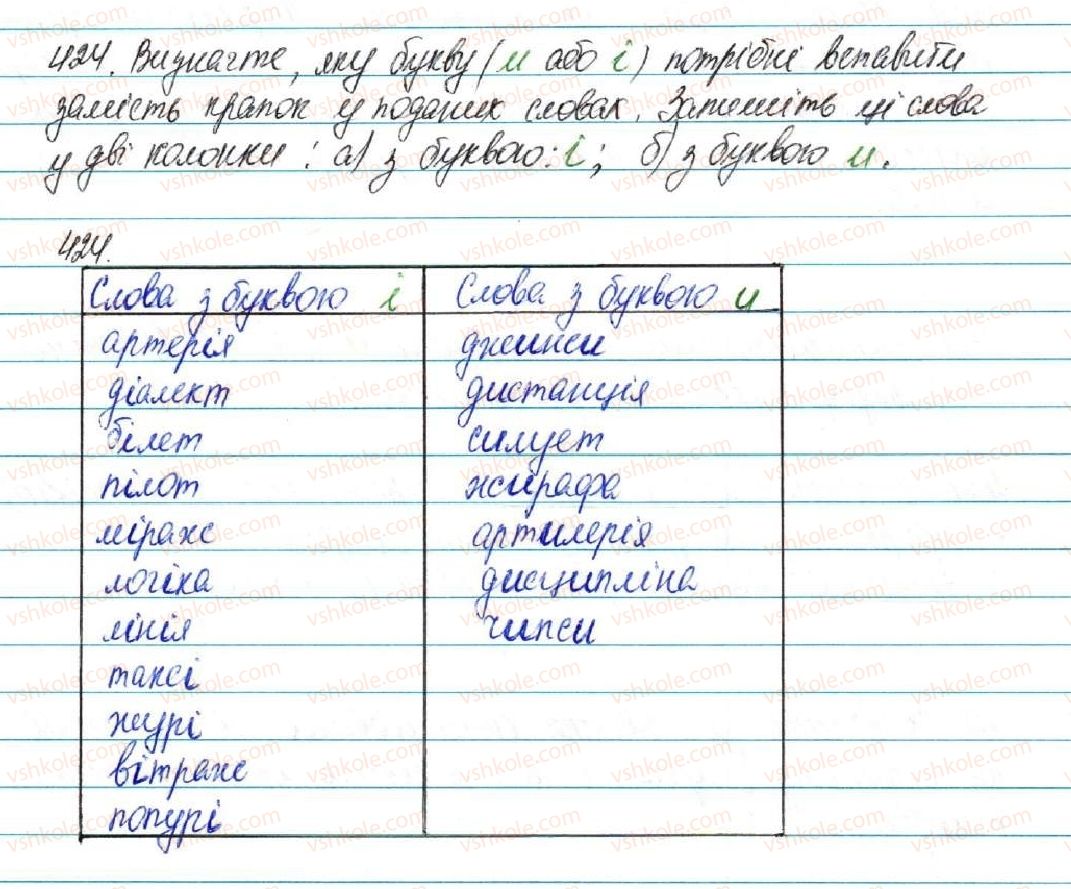 424. Визначте, яку букву (и або і) потрібні вставити
замість крапок у поданих словах. Запишіть ці слова
у дві колонки: а) з буквою: і; б) з буквою и.
424.
Слова з буквою і	Слова з буквою и
артерія	джинси
діалект	дистанція
білет	силует
пілот	жирафа
міраж	артилерія
логіка	дисципліна
лінія	чипси
таксі
журі
вітраж
попурі
vshkole.com